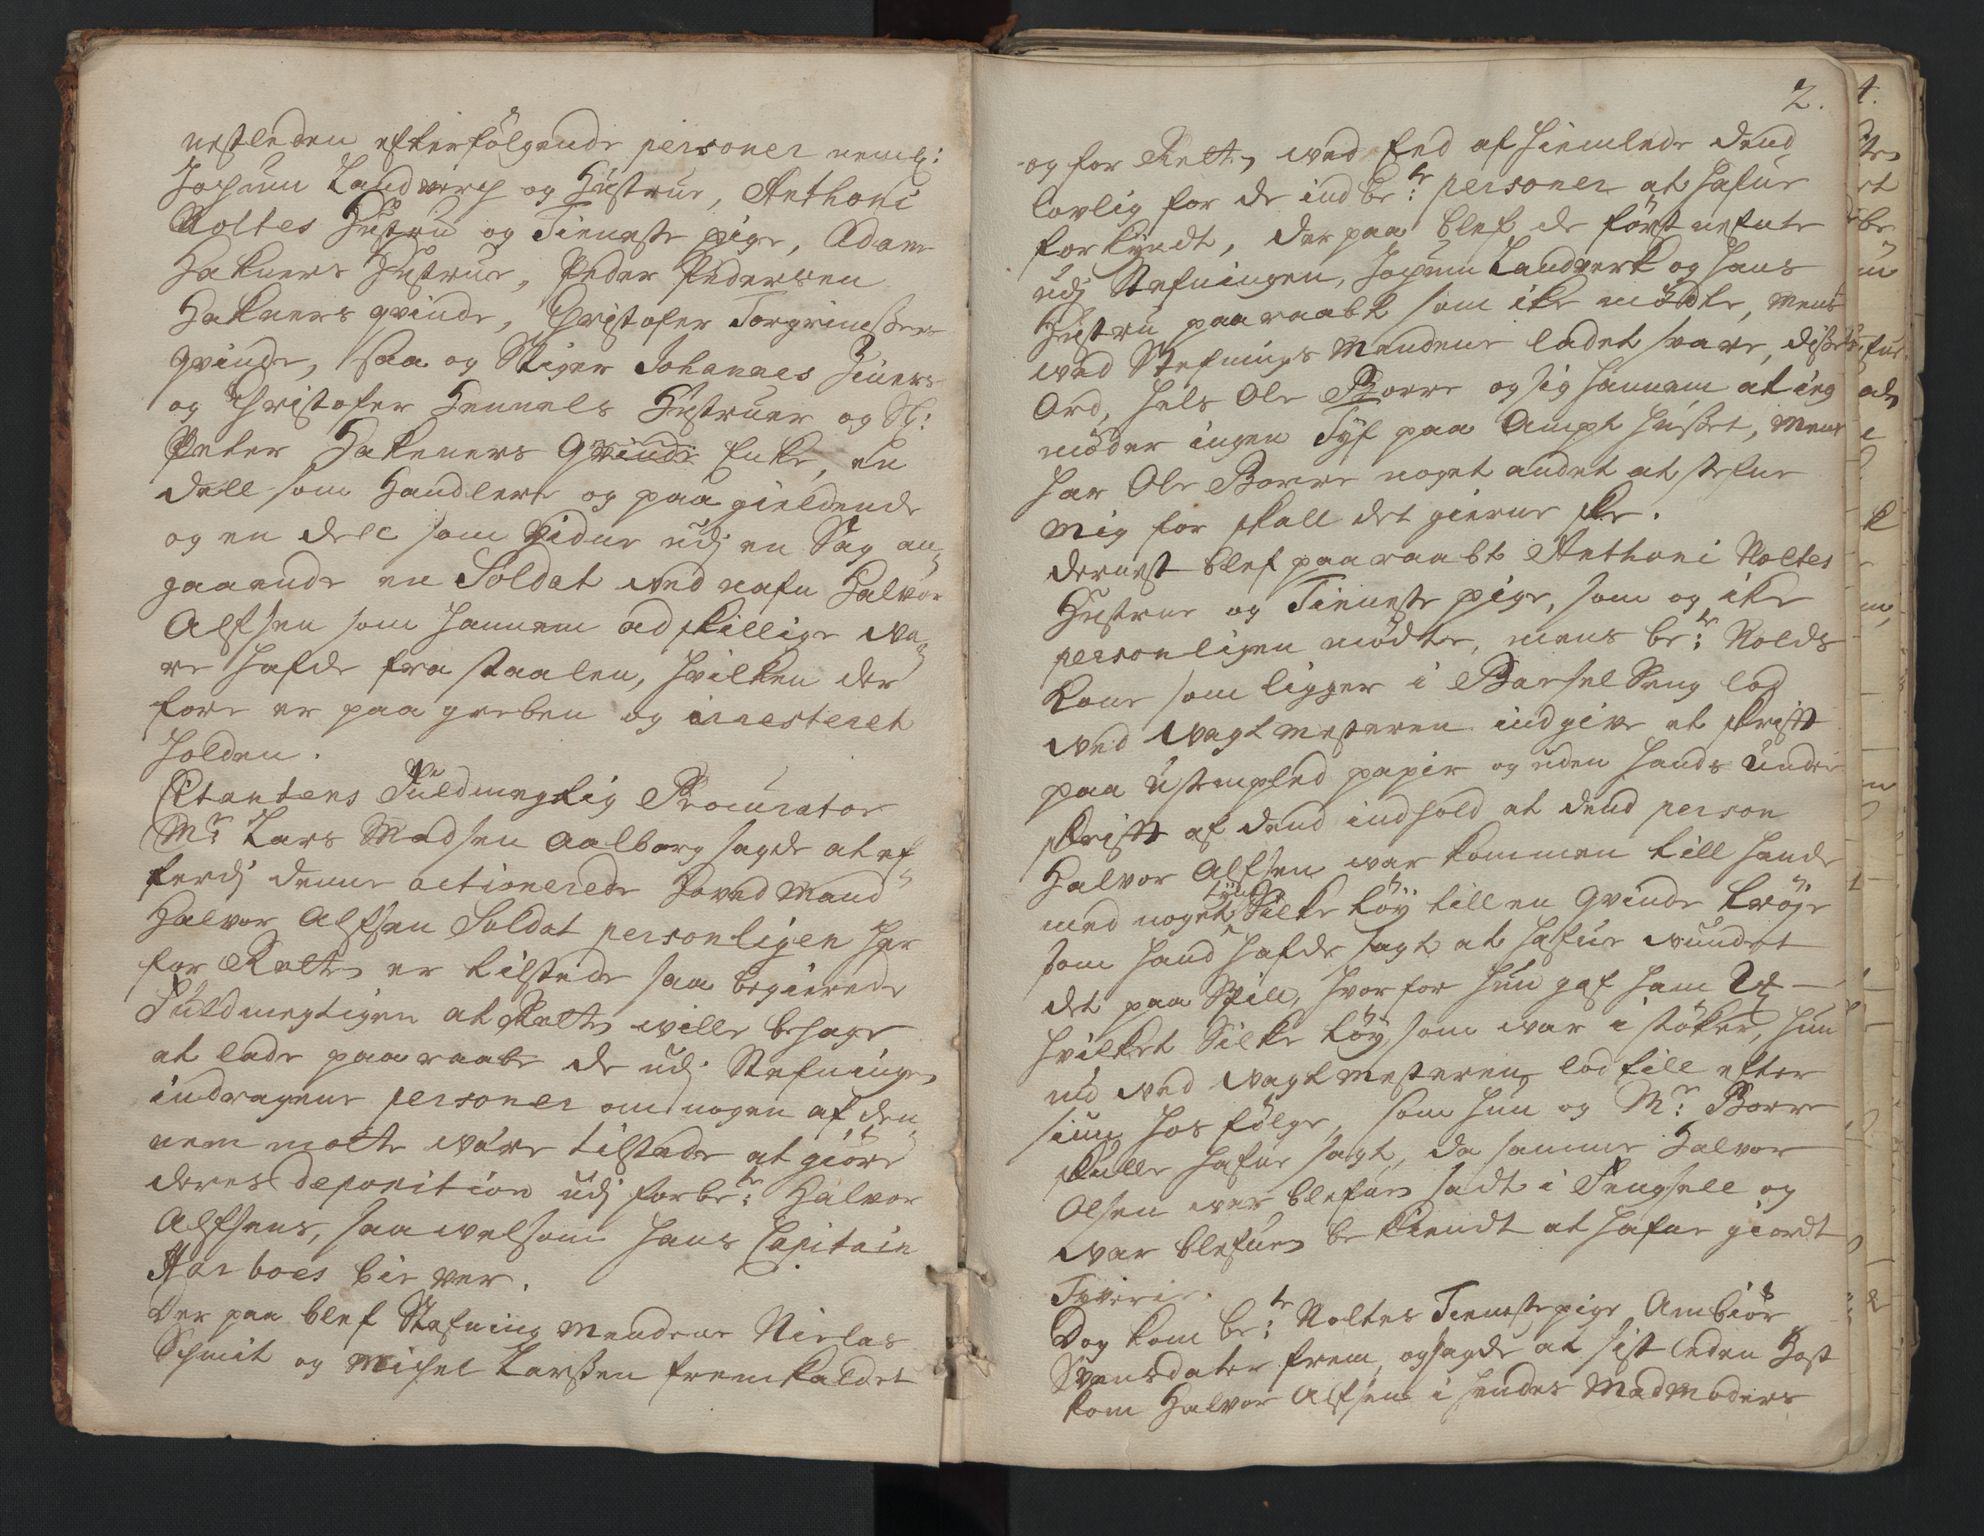 nestleden efterfølgende personer neml:
Jochum Landverch og Hustrue, Anthoni
Noltes Hustru og Tieneste pige, Adam
Hakners Hustrue, Peder Pedersen
Hakners qvinde, Christofer Torgrimssens
qvinde, saa og Stiger Johannes Ziners
og Christofer Hennels Hustruer og Sl:
Peter Hakeners Qvinde Enke, en
deell som Handlere og paagieldende
og en deel som Vidne udj en Sag an-
gaaende en Soldat ved nafn Halvor
Alfsen som hannem adskillige va-
re hafde fra staalen, hvilken der
fore er paagreben og arresteret
holden.
Citantens Fuldmegtig Procurator
Mr Lars Madsen Aalborg sagde at ef-
terdj denne actionerede Hoved Mand
Halvor Alfsen Soldat personligen her
for Retten er tilstede saa begierede
Fuldmegtigen at Retten wille behage
at lade paaraabe de udj Stefningen
indragene personer om nogen af den-
nem motte være tilstede at giøre
deres deposition udj forbe:te Halvor
Alfsens, saa welsom hans Capitain
Aarboes bie ver.
Der paa blef Stefning Mendene Nielas
Schmit og Michel Larssen fremkaldet
2.
og for Retten wed Eed afhiemlede dend
lovlig for de indbe:te personer at hafue
forkyndt, der paa blef de først nefnte
udj Stefningen, Jochum Landverk og hans
Hustru paaraabt som ike mødte, mens
wed Stefnings Mendene ladet svare, disse
Ord, hels Ole Borre og sig hannem at ieg
møder ingen Tyf paa Ampt Husset, Mens
har Ole Borre noget andet at stefne
mig for skall det gierne ske.
dernest blef paaraabt Anthoni Noltes
Hustrue og Tieneste pige, som og ike
personligen mødte, mens be:te Nolds
Kone som ligger i Barsel Seng lod
wed Wagtmesteren indgive et skrift
paa ustempled papir og uden hands under
skrift af dend indhold at dend person
Halvor Alfsen war kommen till hende
med noget tynd Silke tøy till en qvinde trøje
som hand hafde sagt at hafue wundet
det paa Spill, hvor for hun gaf ham
hvilket Silke tøy som war i støker, hun
nu wed Wagtmesteren lod till efter
siun hos følge, som hun og Mr: Borre
skulle hafue sagt, da samme Halvor
Olsen war blefuen sadt i Fengsell og
war blefuen bekiendt at hafue giordt
Tyverie.
Dog kom be:te Noltes Tienestepige Ambiør
Svensdater frem, og sagde at sist leden Høst
kom Halvor Alfsen i hendes Madmoders